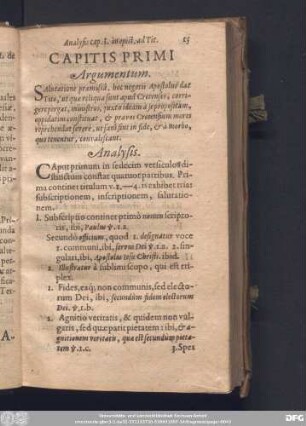 Analysis cap. I. in epist. ad Tit. 23
CAPITIS PRIMI
Argumentum.
SAlutatione præmissâ, hoc negotii Apostolus dat
Tito, ut quæ reliqua sunt apud Cretenses, corri-
gere pergat, ministros, juxta ideam à se propositam,
oppidatim constituat, & pravos Cretensium mores
reprehendat severe, ut sani sint in fide, & à morbo,
quo tenentur, convalescant.
Analysis.
CAput primum in sedecim versiculos di-
stinctum constat quatuor partibus. Pri-
ma continet titulum v. 1.—4. is exhibet trias
subscriptionem, inscriptionem, salutatio-
nem.
1. Subscriptio continet primò nomen scripto-
ris, ibi, Paulus v. 1. a.
Secundò officium, quod 1. designatur voce
1. communi, ibi, servus Dei v. 1. a. 2. sin-
gulari, ibi, Apostolus Jesu Christi. ibid.
2. Illustratur à subalmi scopo, qui est tri-
plex.
1. Fides, eaq; non communis, sed electo-
rum Dei, ibi, secundùm fidem electorum
Dei. v. 1. b.
2. Agnitio veritatis, & quidem non vul-
garis, sed quæ patit pietatem: ibi, & a-
gnitionem veritatis, quæ est secundùm pieta-
tem v. 1. c.
3. Spes